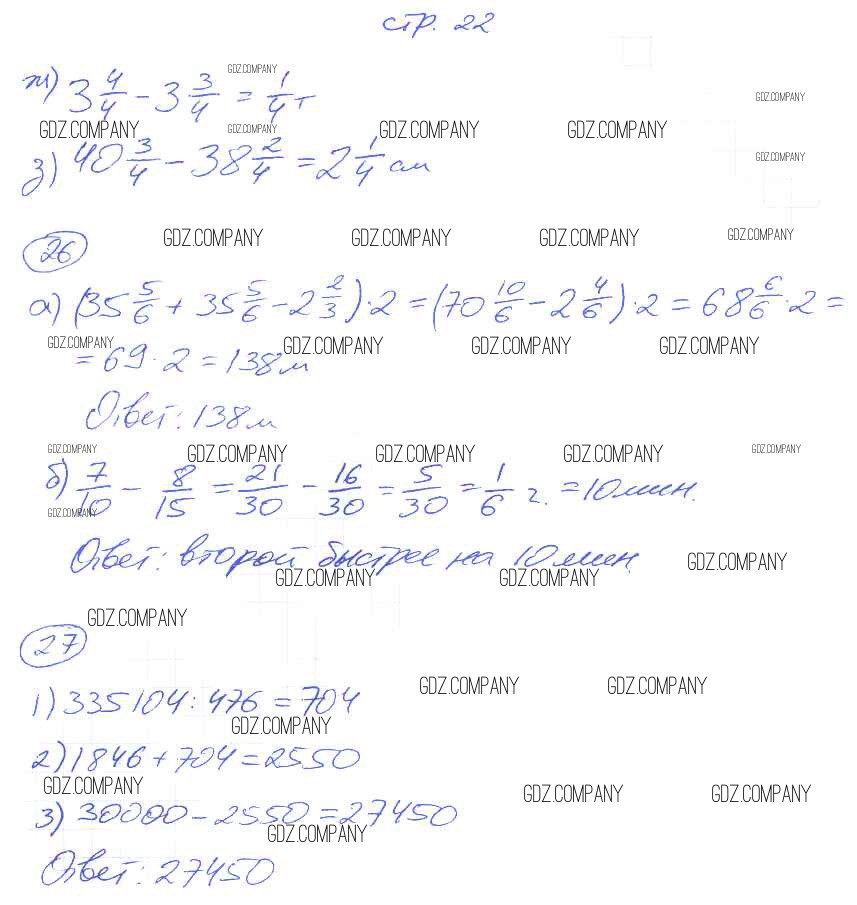 стр. 22
ж) 3 4/4 - 3 3/4 = 1/4 т
GDZ.COMPANY
GDZ.COMPANY
GDZ.COMPANY GDZ.COMPANY GDZ.COMPANY GDZ.COMPANY
з) 40 3/4 - 38 2/4 = 2 1/4 см
GDZ.COMPANY
26
GDZ.COMPANY GDZ.COMPANY GDZ.COMPANY GDZ.COMPANY
а) (35 5/6 + 35 5/6 - 2 2/3) · 2 = (70 10/6 - 2 4/6) · 2 = 68 6/6 · 2 =
GDZ.COMPANY GDZ.COMPANY GDZ.COMPANY GDZ.COMPANY
= 69 · 2 = 138 м
Ответ: 138 м
GDZ.COMPANY GDZ.COMPANY GDZ.COMPANY GDZ.COMPANY GDZ.COMPANY
б) 7/10 - 8/15 = 21/30 - 16/30 = 5/30 = 1/6 г. = 10 мин.
GDZ.COMPANY
Ответ: второй быстрее на 10 мин
GDZ.COMPANY
GDZ.COMPANY GDZ.COMPANY
GDZ.COMPANY
27
GDZ.COMPANY GDZ.COMPANY
1) 335104 : 476 = 704
GDZ.COMPANY
2) 1846 + 704 = 2550
GDZ.COMPANY GDZ.COMPANY GDZ.COMPANY
3) 30000 - 2550 = 27450
GDZ.COMPANY
Ответ: 27450